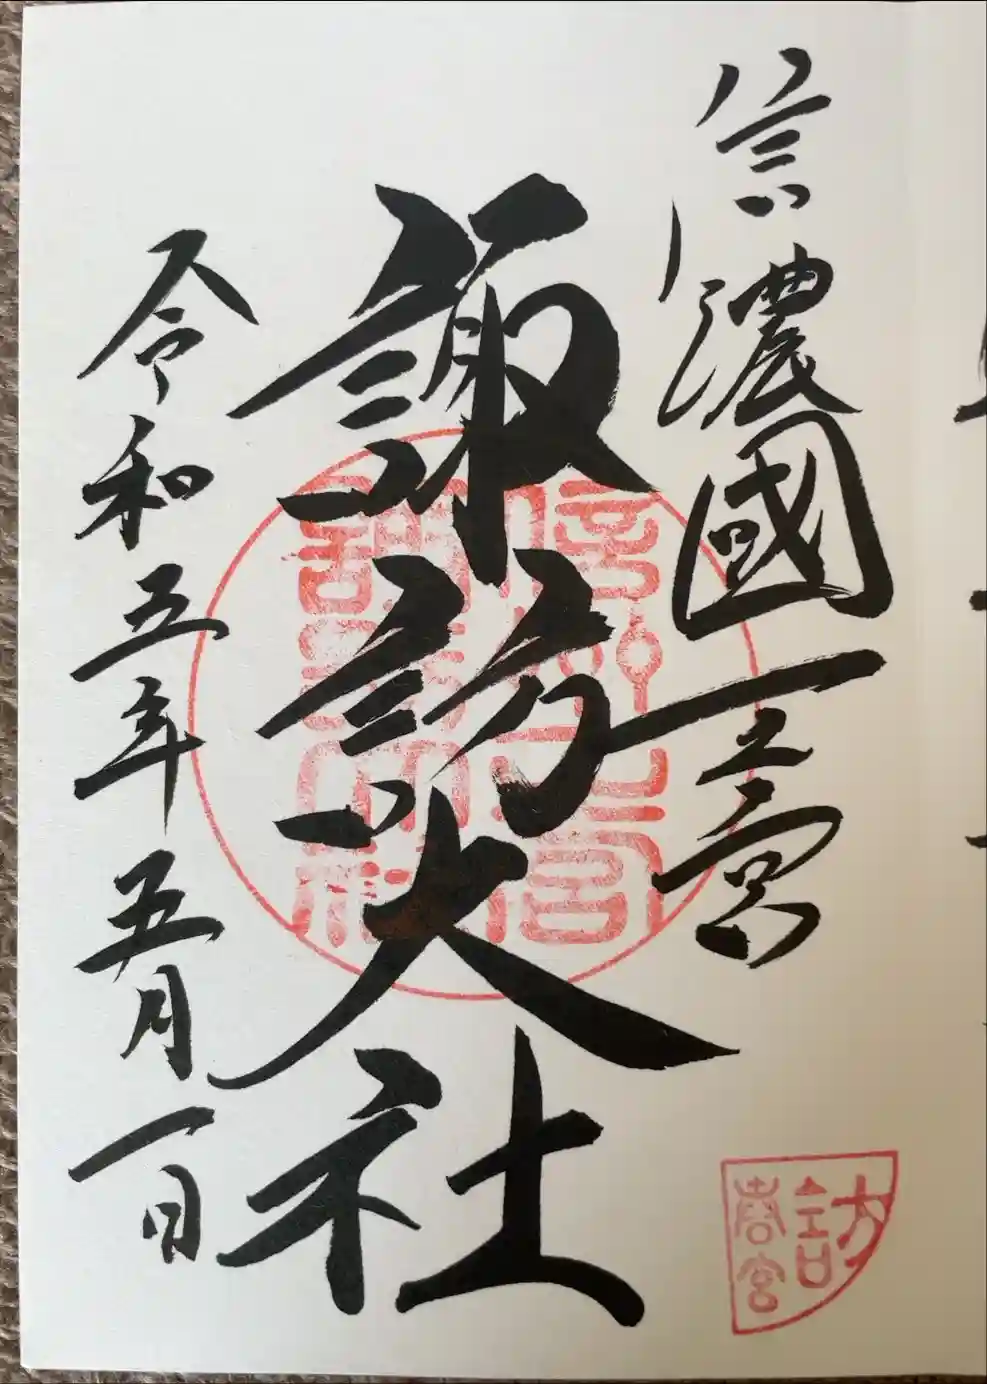 信濃國一之宮
諏訪大社
令和五年五月一日
訪
春宮